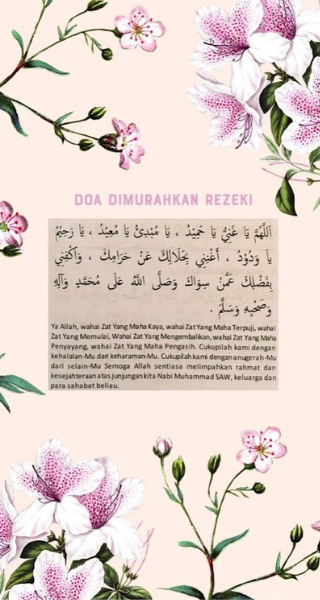 DOA DIMURAHKAN REZEKI
اَللّٰهُمَّ يَا غَنِيُّ يَا حَمِيْدُ ، يَا مُبْدِئُ يَا مُعِيْدُ ، يَا رَحِيْمُ
يَا وَدُوْدُ ، أَغْنِنِي بِحَلَالِكَ عَنْ حَرَامِكَ ، وَاكْفِنِي
بِفَضْلِكَ عَمَّنْ سِوَاكَ وَصَلَّى اللّٰهُ عَلَى مُحَمَّدٍ وَآلِهِ
وَصَحْبِهِ وَسَلَّمَ .
Ya Allah, wahai Zat Yang Maha Kaya, wahai Zat Yang Maha Terpuji, wahai
Zat Yang Memulai, Wahai Zat Yang Mengembalikan, wahai Zat Yang Maha
Penyayang, wahai Zat Yang Maha Pengasih. Cukupilah kami dengan
kehalalan-Mu dari keharaman-Mu. Cukupilah kami dengan anugerah-Mu
dari selain-Mu Semoga Allah sentiasa melimpahkan rahmat dan
kesejahteraan atas junjungan kita Nabi Muhammad SAW, keluarga dan
para sahabat beliau.